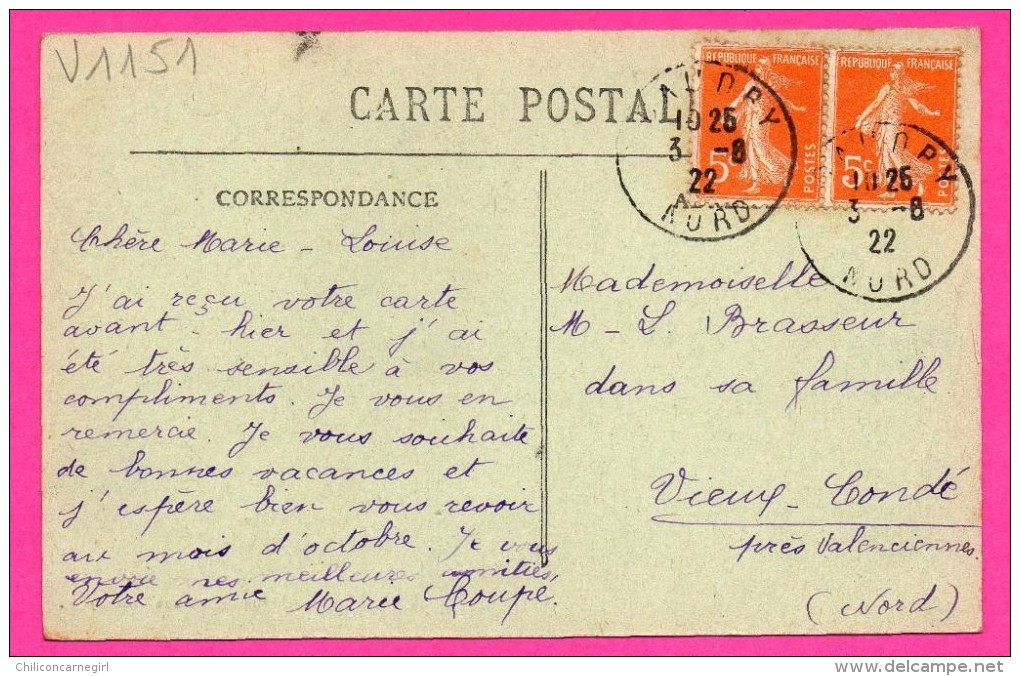 V1151
CARTE POSTAL
REPUBLIQUE FRANÇAISE
5
POSTES
REPUBLIQUE FRANÇAISE
5c
POSTES
10 25
3 -8
22
NORD
10 25
3 -8
22
NORD
CORRESPONDANCE
Chère Marie - Louise
J'ai reçu votre carte
avant - hier et j'ai
été très sensible à vos
compliments. Je vous en
remercie. Je vous souhaite
de bonnes vacances et
j'espère bien vous revoir
au mois d'octobre. Je vous
envoie mes meilleures amitiés,
Votre amie Marie Coupe.
Mademoiselle
M - L. Brasseur
dans sa famille
Vieux - Condé
près Valenciennes.
(Nord)
Chiliconcarnegirl
delcampe.net